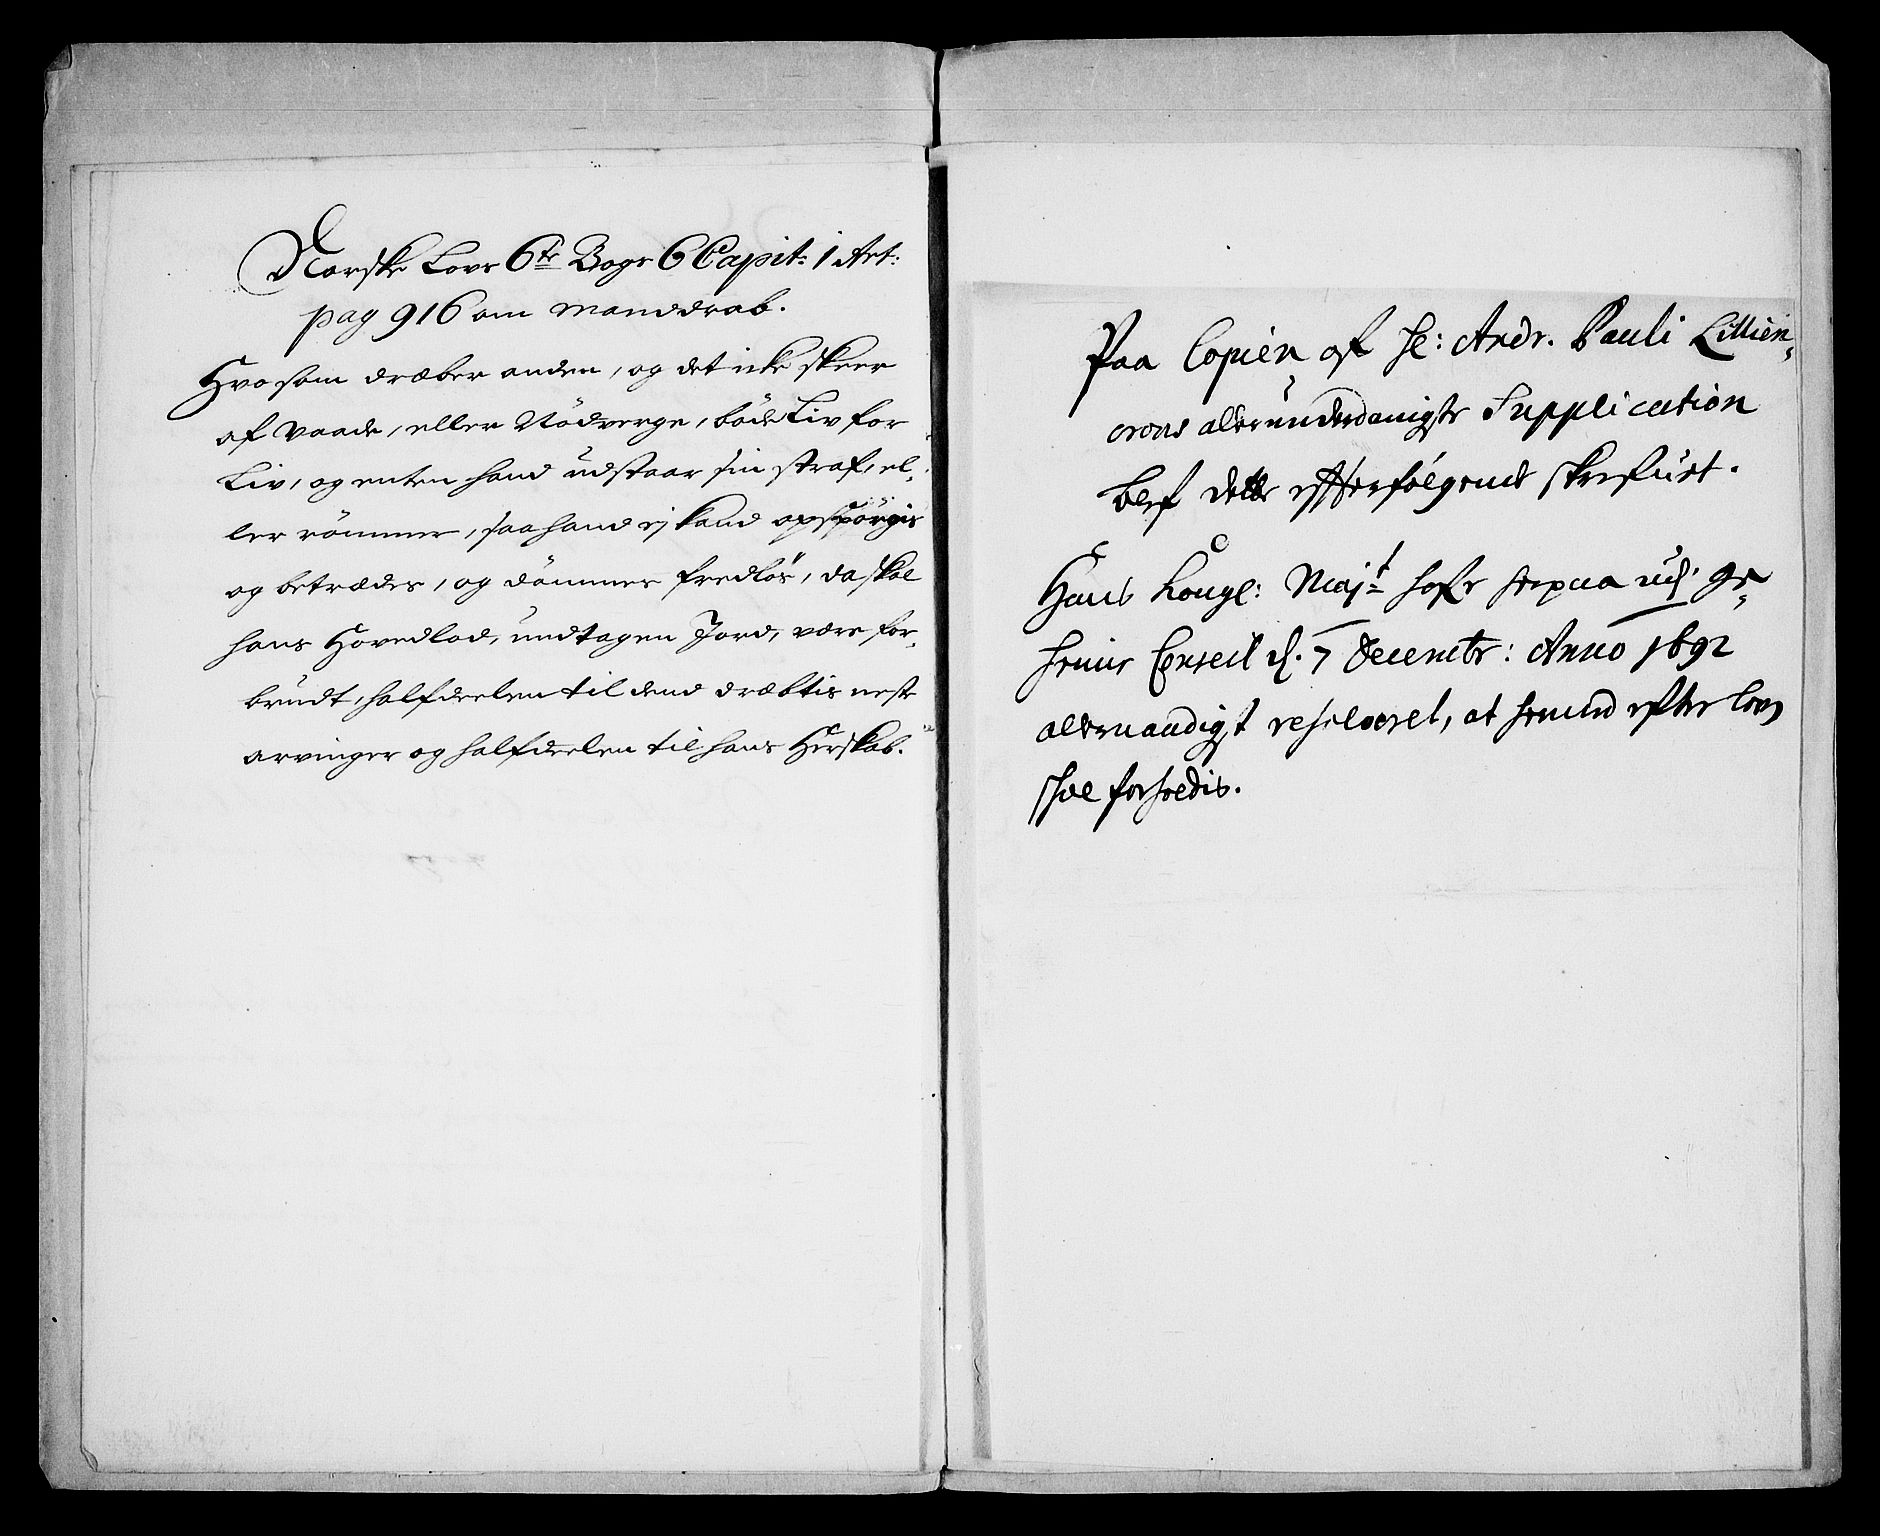 Norske Lovs 6te Bogs 6 Capit: 1 Art:
pag 916 om Manddrab.
Hvo som dræber anden, og det icke skeer
af Vaade, eller Nödverge, böde Liv for
Liv, og enten hand udstaar sin straf, el-
ler römmer, saa hand ej kand opspörgis
og betrædes, og dömmes fredlös, da skal
hans Hovedlod, undtagen Jord, være for-
brudt, halfdeelen til dend dræbtis neste
arvinger og halfdeelen til hans Herskab.
Paa Copien af Hr: Andr. Pauli Lillien-
crons allerunderdanigste Supplication
blef dette effterfölgende skrefuet.
Hans Kongl: Majt hafr herpaa udj ge-
heime Conseil d. 7 Decembr: Anno 1692
allernaadigst resolveret, at hermed efter loven
skal forholdis.